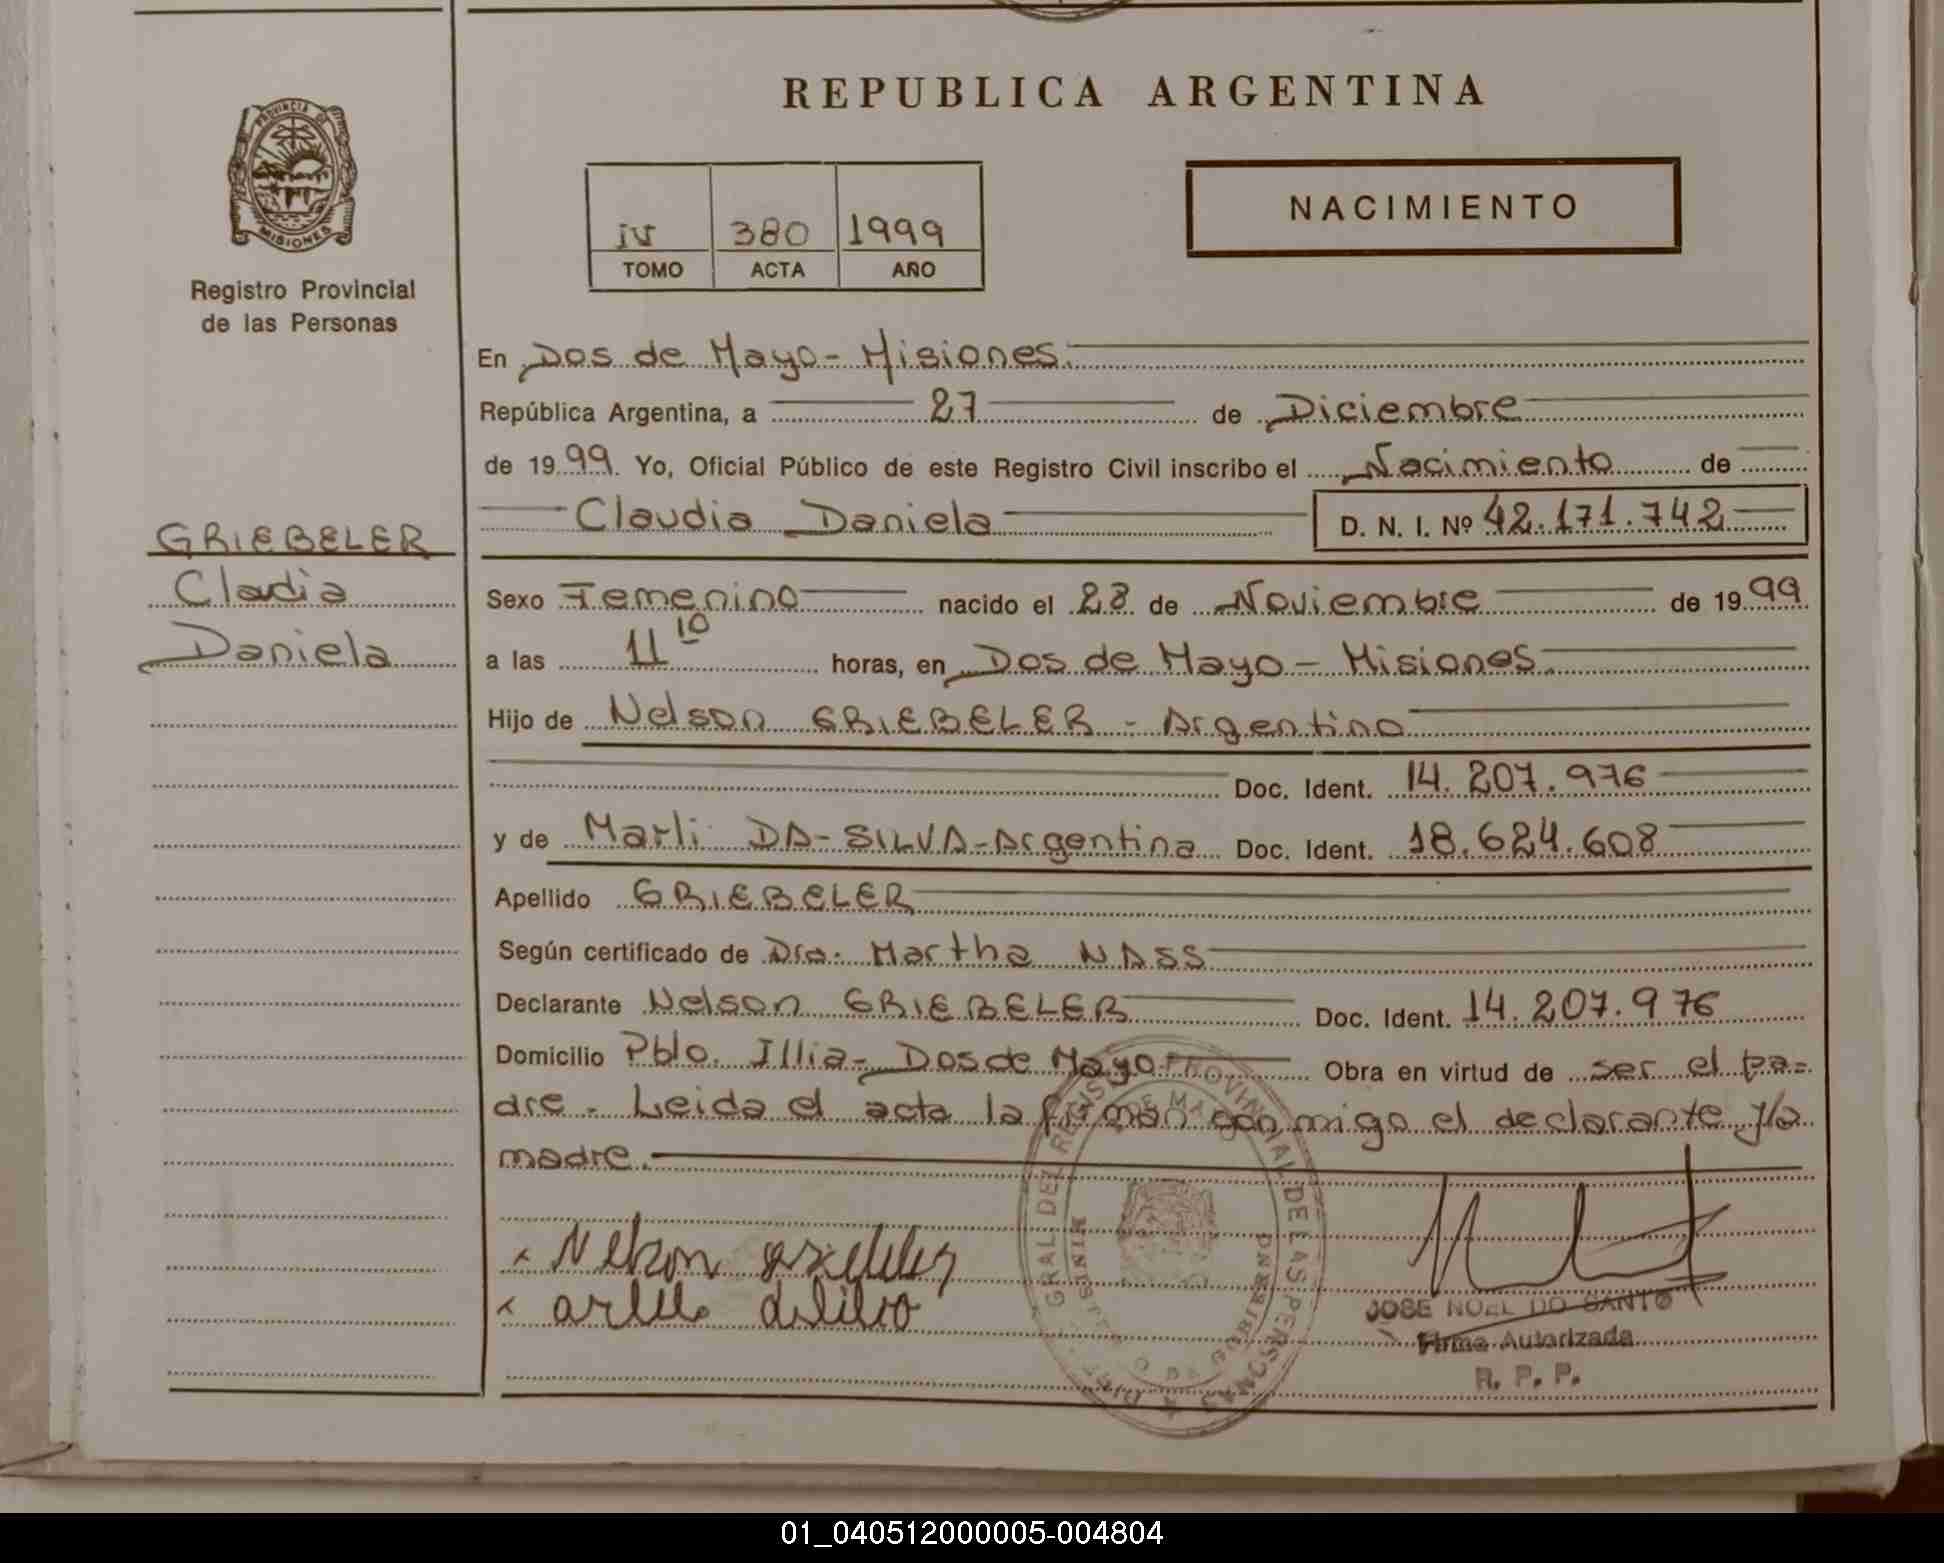 REPUBLICA ARGENTINA
PROVINCIA DE
MISIONES
Registro Provincial
de las Personas
iv 380 1999
TOMO ACTA AÑO
NACIMIENTO
En Dos de Mayo - Misiones.
República Argentina, a 27 de Diciembre
de 1999. Yo, Oficial Público de este Registro Civil inscribo el Nacimiento de
Claudia Daniela D. N. I. Nº 42.171.742
GRIEBELER
Cladia
Daniela
Sexo Femenino nacido el 28 de Noviembre de 1999
a las 11 10 horas, en Dos de Mayo - Misiones.
Hijo de Nelson GRIEBELER - Argentino
Doc. Ident. 14.207.976
y de Marli DA-SILVA-Argentina Doc. Ident. 18.624.608
Apellido GRIEBELER
Según certificado de Dra. Martha NASS
Declarante Nelson GRIEBELER Doc. Ident. 14.207.976
Domicilio Pblo. Illia - Dos de Mayo Obra en virtud de ser el pa=
dre - Leida el acta la firman conmigo el declarante y/a
madre.
x Nelson
x
JOSE NOEL DO SANTO
Firma Autorizada
R. P. P.
GRAL DEL REGISTRO PROVINCIAL DE LAS PERSONAS
01_040512000005-004804